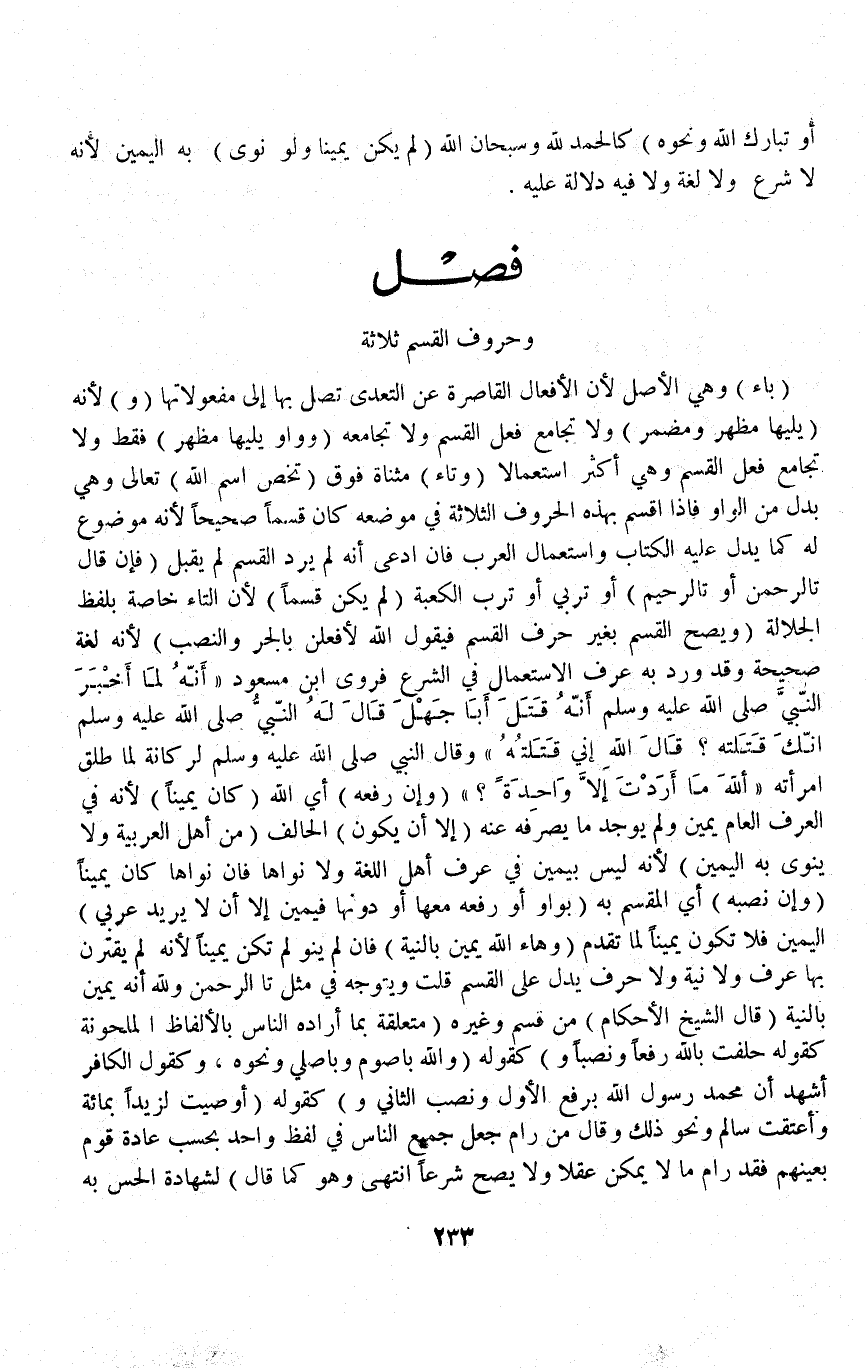 أو تبارك الله ونحوه ) كالحمد لله وسبحان الله ( لم يكن يمينا ولو نوى ) به اليمين لأنه
لا شرع ولا لغة ولا فيه دلالة عليه .
فصل
وحروف القسم ثلاثة
( باء ) وهي الأصل لأن الأفعال القاصرة عن التعدى تصل بها إلى مفعولاتها ( و ) لأنه
( يليها مظهر ومضمر ) ولا تجامع فعل القسم ولا تجامعه ( وواو يليها مظهر ) فقط ولا
تجامع فعل القسم وهي أكثر استعمالا ( وتاء ) مثناة فوق ( تخص اسم الله ) تعالى وهي
بدل من الواو فاذا اقسم بهذه الحروف الثلاثة في موضعه كان قسماً صحيحاً لأنه موضوع
له كما يدل عليه الكتاب واستعمال العرب فان ادعى أنه لم يرد القسم لم يقبل ( فإن قال
تالرحمن أو تالرحيم ) أو تربي أو ترب الكعبة ( لم يكن قسماً ) لأن التاء خاصة بلفظ
الجلالة ( ويصح القسم بغير حرف القسم فيقول الله لأفعلن بالجر والنصب ) لأنه لغة
صحيحة وقد ورد به عرف الاستعمال في الشرع فروى ابن مسعود « أَنَّهُ لمَا أَخْبَرَ
النَّبيَّ صلى الله عليه وسلم أَنَّهُ قَتَلَ أَبَا جَهْلَ قَالَ لَهُ النَّبيُّ صلى الله عليه وسلم
انَّكَ قَتَلته ؟ قَالَ اللهِ إني قَتَلتُهُ » وقال النبي صلى الله عليه وسلم لركانة لما طلق
امرأته « أللهَ مَا أَرَدْتَ إلاَّ وَاحِدَةً ؟ » ( وإن رفعه ) أي الله ( كان يميناً ) لأنه في
العرف العام يمين ولم يوجد ما يصرفه عنه ( إلا أن يكون ) الحالف ( من أهل العربية ولا
ينوى به اليمين ) لأنه ليس بيمين في عرف أهل اللغة ولا نواها فان نواها كان يميناً
( وإن نصبه ) أي المقسم به ( بواو أو رفعه معها أو دونها فيمين إلا أن لا يريد عربي )
اليمين فلا تكون يميناً لما تقدم ( وهاء الله يمين بالنية ) فان لم ينو لم تكن يميناً لأنه لم يقترن
بها عرف ولا نية ولا حرف يدل على القسم قلت ويتوجه في مثل تا الرحمن ولله أنه يمين
بالنية ( قال الشيخ الأحكام ) من قسم وغيره ( متعلقة بما أراده الناس بالألفاظ ا لملحونة
كقوله حلفت بالله رفعاً ونصباً و ) كقوله ( والله باصوم وباصلي ونحوه ، وكقول الكافر
أشهد أن محمد رسول الله برفع الأول ونصب الثاني و ) كقوله ( أوصيت لزيداً بمائة
وأعتقت سالم ونحو ذلك وقال من رام جعل جميع الناس في لفظ واحد بحسب عادة قوم
بعينهم فقد رام ما لا يمكن عقلا ولا يصح شرعاً انتهى وهو كما قال ) لشهادة الحس به
٢٣٣